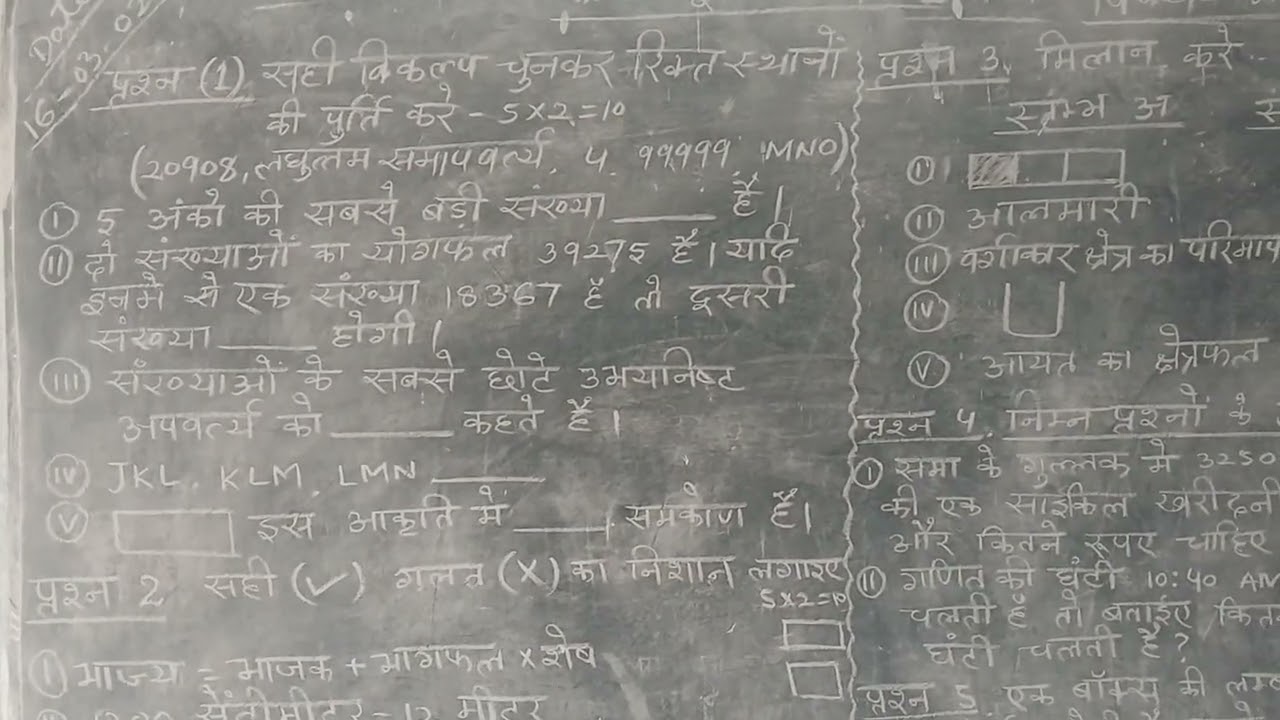 Date
16-03-02
प्रश्न (1) सही विकल्प चुनकर रिक्त स्थानों
की पुर्ति करे - 5×2=10
(20908, लघुत्तम समापवर्त्य, 4, 99999, MNO)
I 5 अंको की सबसे बड़ी संख्या ______ है।
II दो संख्याओं का योगफल 39275 है। यदि
इनमें से एक संख्या 18367 है तो दूसरी
संख्या ______ होगी।
III संख्याओं के सबसे छोटे उभयनिष्ट
अपवर्त्य को ______ कहते है।
IV JKL, KLM, LMN ______
V इस आकृति में ______ समकोण है।
प्रश्न 2 सही (✓) गलत (X) का निशान लगाइए
5×2=10
I भाज्य = भाजक + भागफल × शेष
सेंतीमीटर - 12 मीटर
प्रश्न 3. मिलान करे -
स्तम्भ अ
I
II आलमारी
III वर्गाकार क्षेत्र का परिमाप
IV
V आयत का क्षेत्रफल
प्रश्न 4. निम्न प्रश्नों के
I समा के गुल्लक में 3250
की एक साईकिल खरीदनी
और कितने रूपए चाहिए
II गणित की घंटी 10:40 AM
चलती है तो बताईए
घंटी चलती है?
प्रश्न 5. एक बॉक्स की